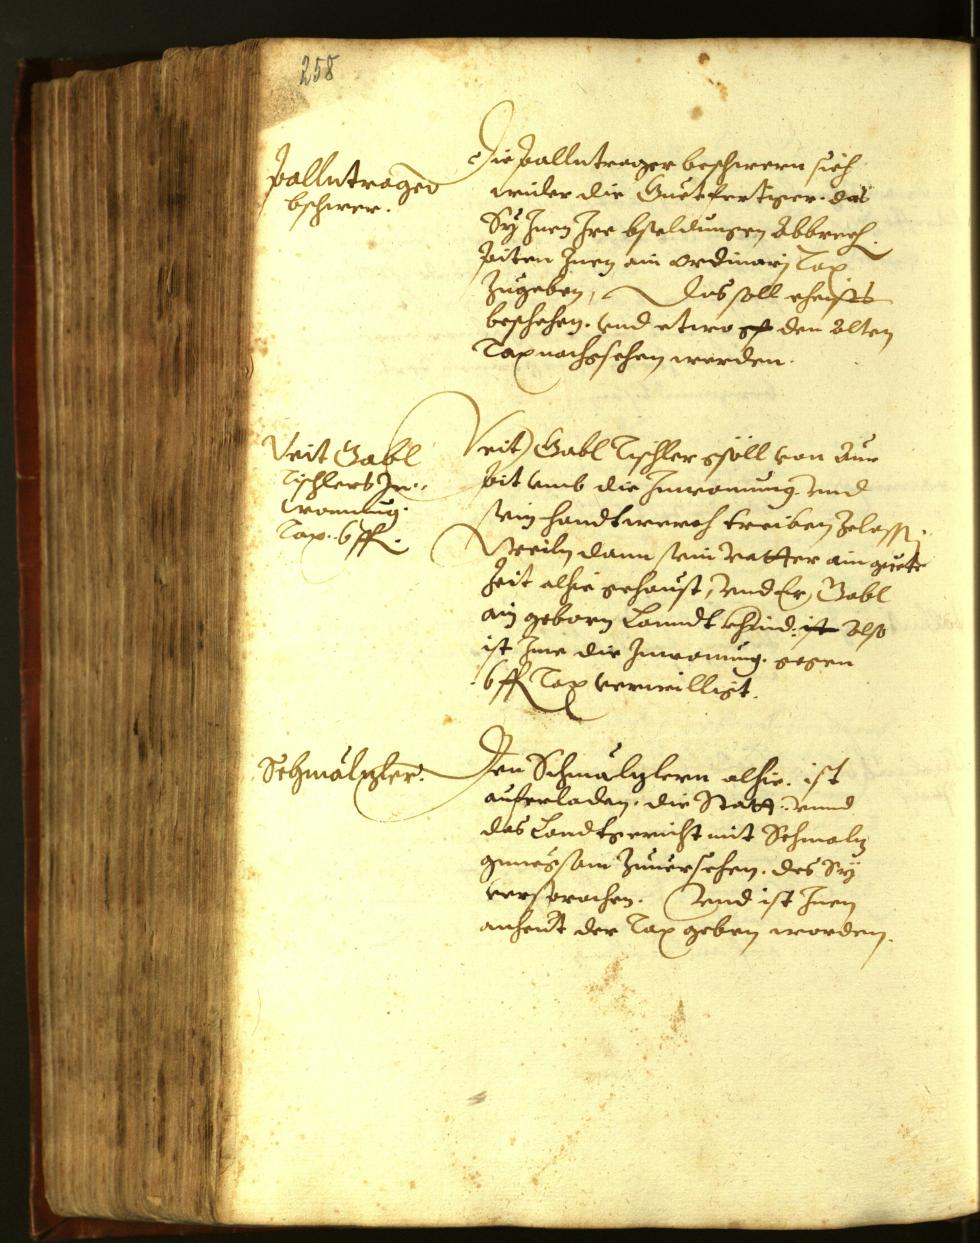 258
Pallntrager
bschwer.
Die Pallntrager beschwern sich
wider die Guetfertiger. das
Sy Inen Ire bsoldungen Abbrech.
Piten Inen ain ordinari Tax
Zugeben, Das soll ehists
beschehen. vnd etwo den Alten
Tax nachgsehen werden.
Veit Gabl
Tischlers In-
wonung.
Tax. 6 ff.
Veit Gabl Tischler gsöll von Aur
Pit vmb die Inwonung vnd
sein handtwerch treiben Zelassn.
Weiln dann sein Vatter ain guete
Zeit alhie gehaust, vnd Er, Gabl
ain geborn Lanndt khind. ist Also
ist Ime die Inwonung. gegen
6 ff Tax verwilligt.
Schmälzler.
Den Schmälzlern alhie. ist
auferladen. die Statt. vnnd
das Landtgericht mit Schmalz
gnuegsam Zuuersehen. des Sy
versprochen. Vnd ist Inen
anheut der Tax geben worden.